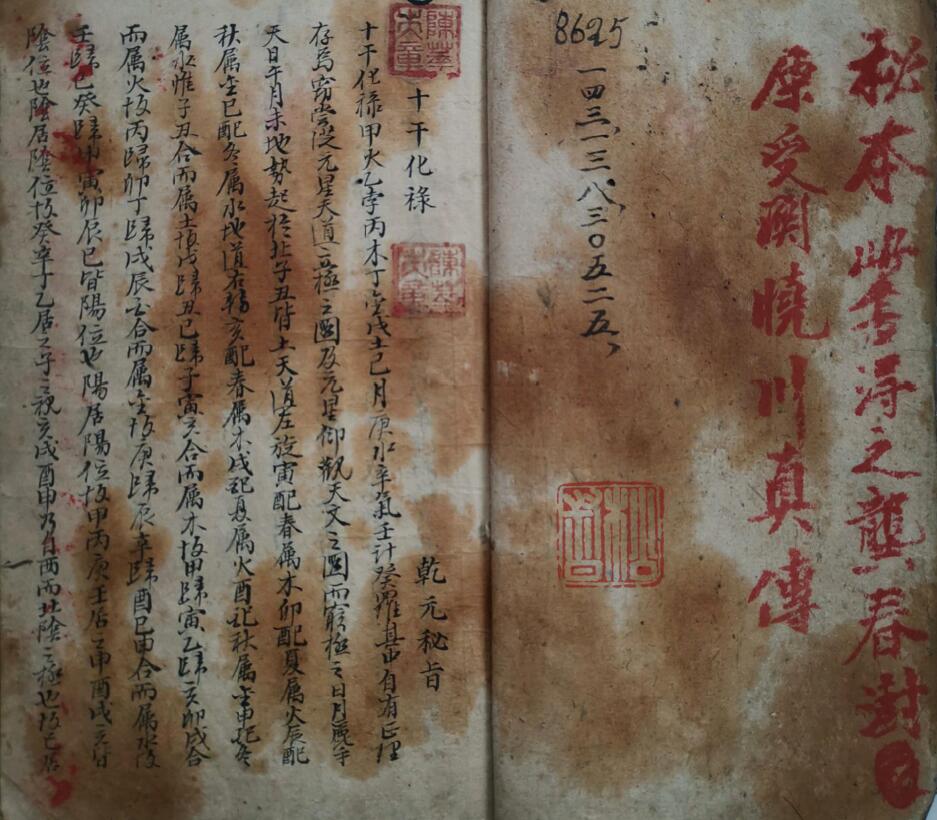 秘本此書得之龔春封
原受関曉川真傳
8625
一四三一三八三〇五二五
十干化祿 乾元秘旨
十干化祿甲火乙孛丙木丁金戊土己月庚水辛氣壬計癸羅其中自有正理
存焉窃嘗从元星天道立極之圖及元星仰觀天文之圖而窮極之日月麗乎
天日午月未地势起於北子丑皆土天道左旋寅配春属木卯配夏属火辰配
秋属金巳配冬属水地道右轉亥配春属木戌配夏属火酉配秋属金申配冬
属水惟子丑合而属土故戊歸丑己歸子寅亥合而属木故甲歸寅乙歸亥卯戌合
而属火故丙歸卯丁歸戌辰酉合而属金故庚歸辰辛歸酉巳申合而属水故
壬歸巳癸歸申寅卯辰巳皆陽位也陽居陽位故甲丙庚壬居之申酉戌亥皆
陰位也陰居陰位故癸辛丁乙居之子亥戌酉申乃自西而北陰之極也故己居